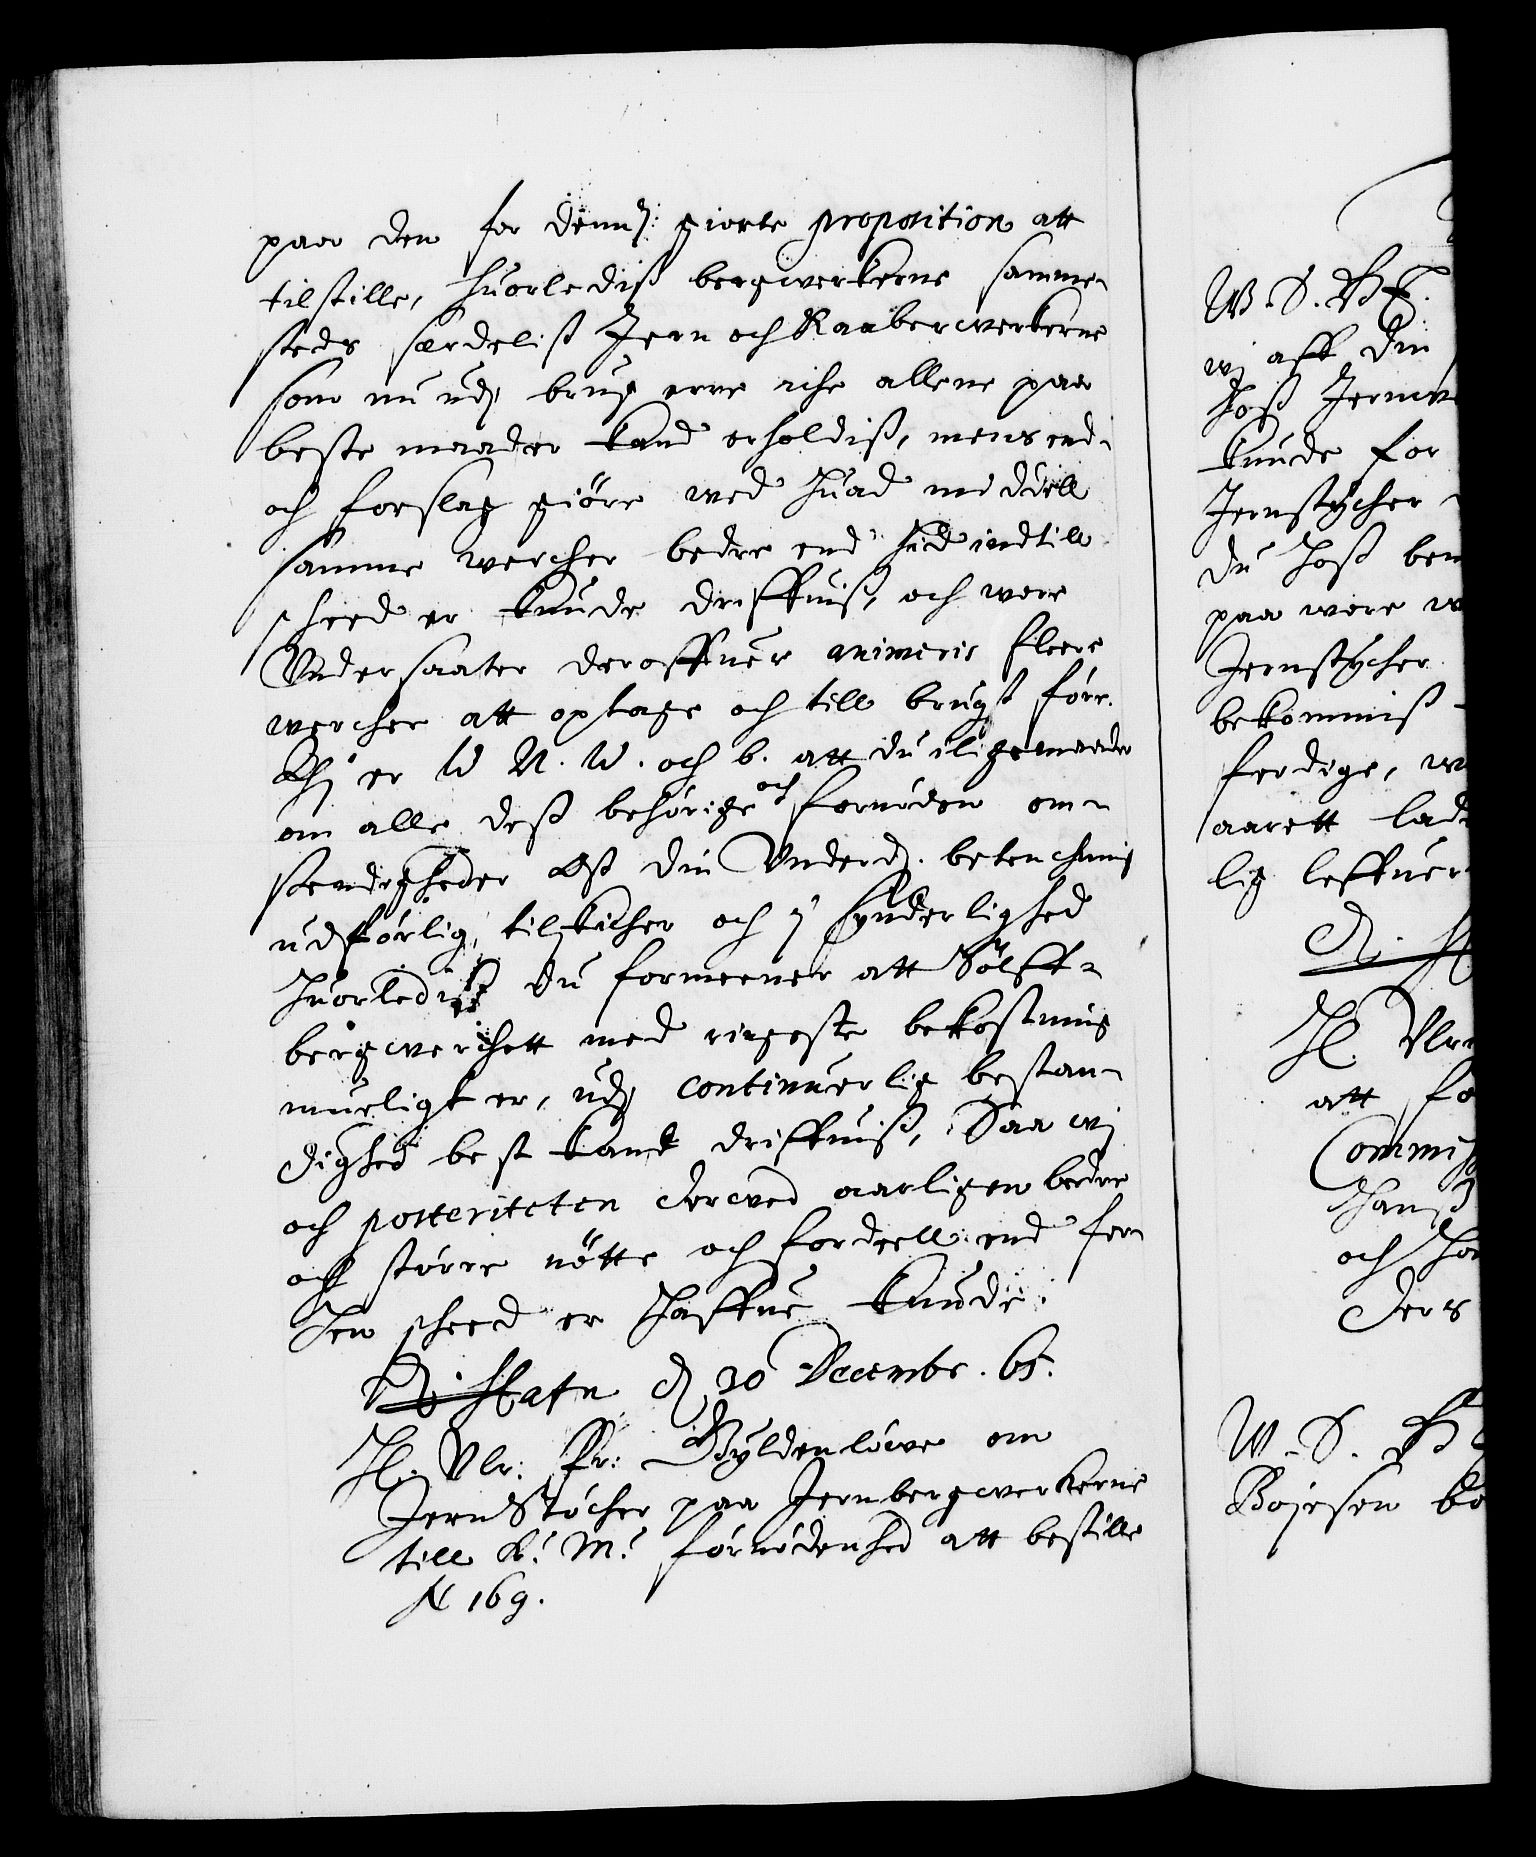 paa den for dennem: giorte proposition att
tilstille, huorlediss bergwerkerne samme-
steds særdeliss Jern och Kaaberwerkerne
som nu udj brug erre iche allene paa
beste maader kand erholdiss, mens end-
och forslag giöre wed huad middell
samme wercher bedre end hid indtill
scheed er kunde driffuiss, och wore
Vndersaater deroffuer animeris fleere
wercher att optage och till brugst före.
Thj er W N. W. och b. att du iligemaader
om alle dess behörige och fornöden om-
stendigheder Oss din Vnderd. betenchning
udförlig, tilskicher och j synderlighed
huorlediss du formeener att Sölff-
bergwerchett med ringeste bekostning
mueligt er, udj continuerlig bestan-
dighed best kand driffuiss, Saa wj
och posteriteten derwed aarligen bedre
och större nötte och fordeell end før-
hen scheed er haffue kunde.
D. Hafn d 30 Decembr. 65.
Hl. Vlr: Fr: Gyldenlöwe om
Jern Stöcher paa Jernbergwerkerne
till K. M. fornödenhed att bestille
N 169.
W. S. G T.
wj aff din
hoss Jernw
kunde for
Jernstycher
du hoss ben
paa wore w
Jernstycher
bekommiss
ferdige, w
aarett lad
lig leffuer
D. H
Hl. Vlr
att fo
Commiss
Hanss
och Ho
ders
W. S. G
Bojesen bo